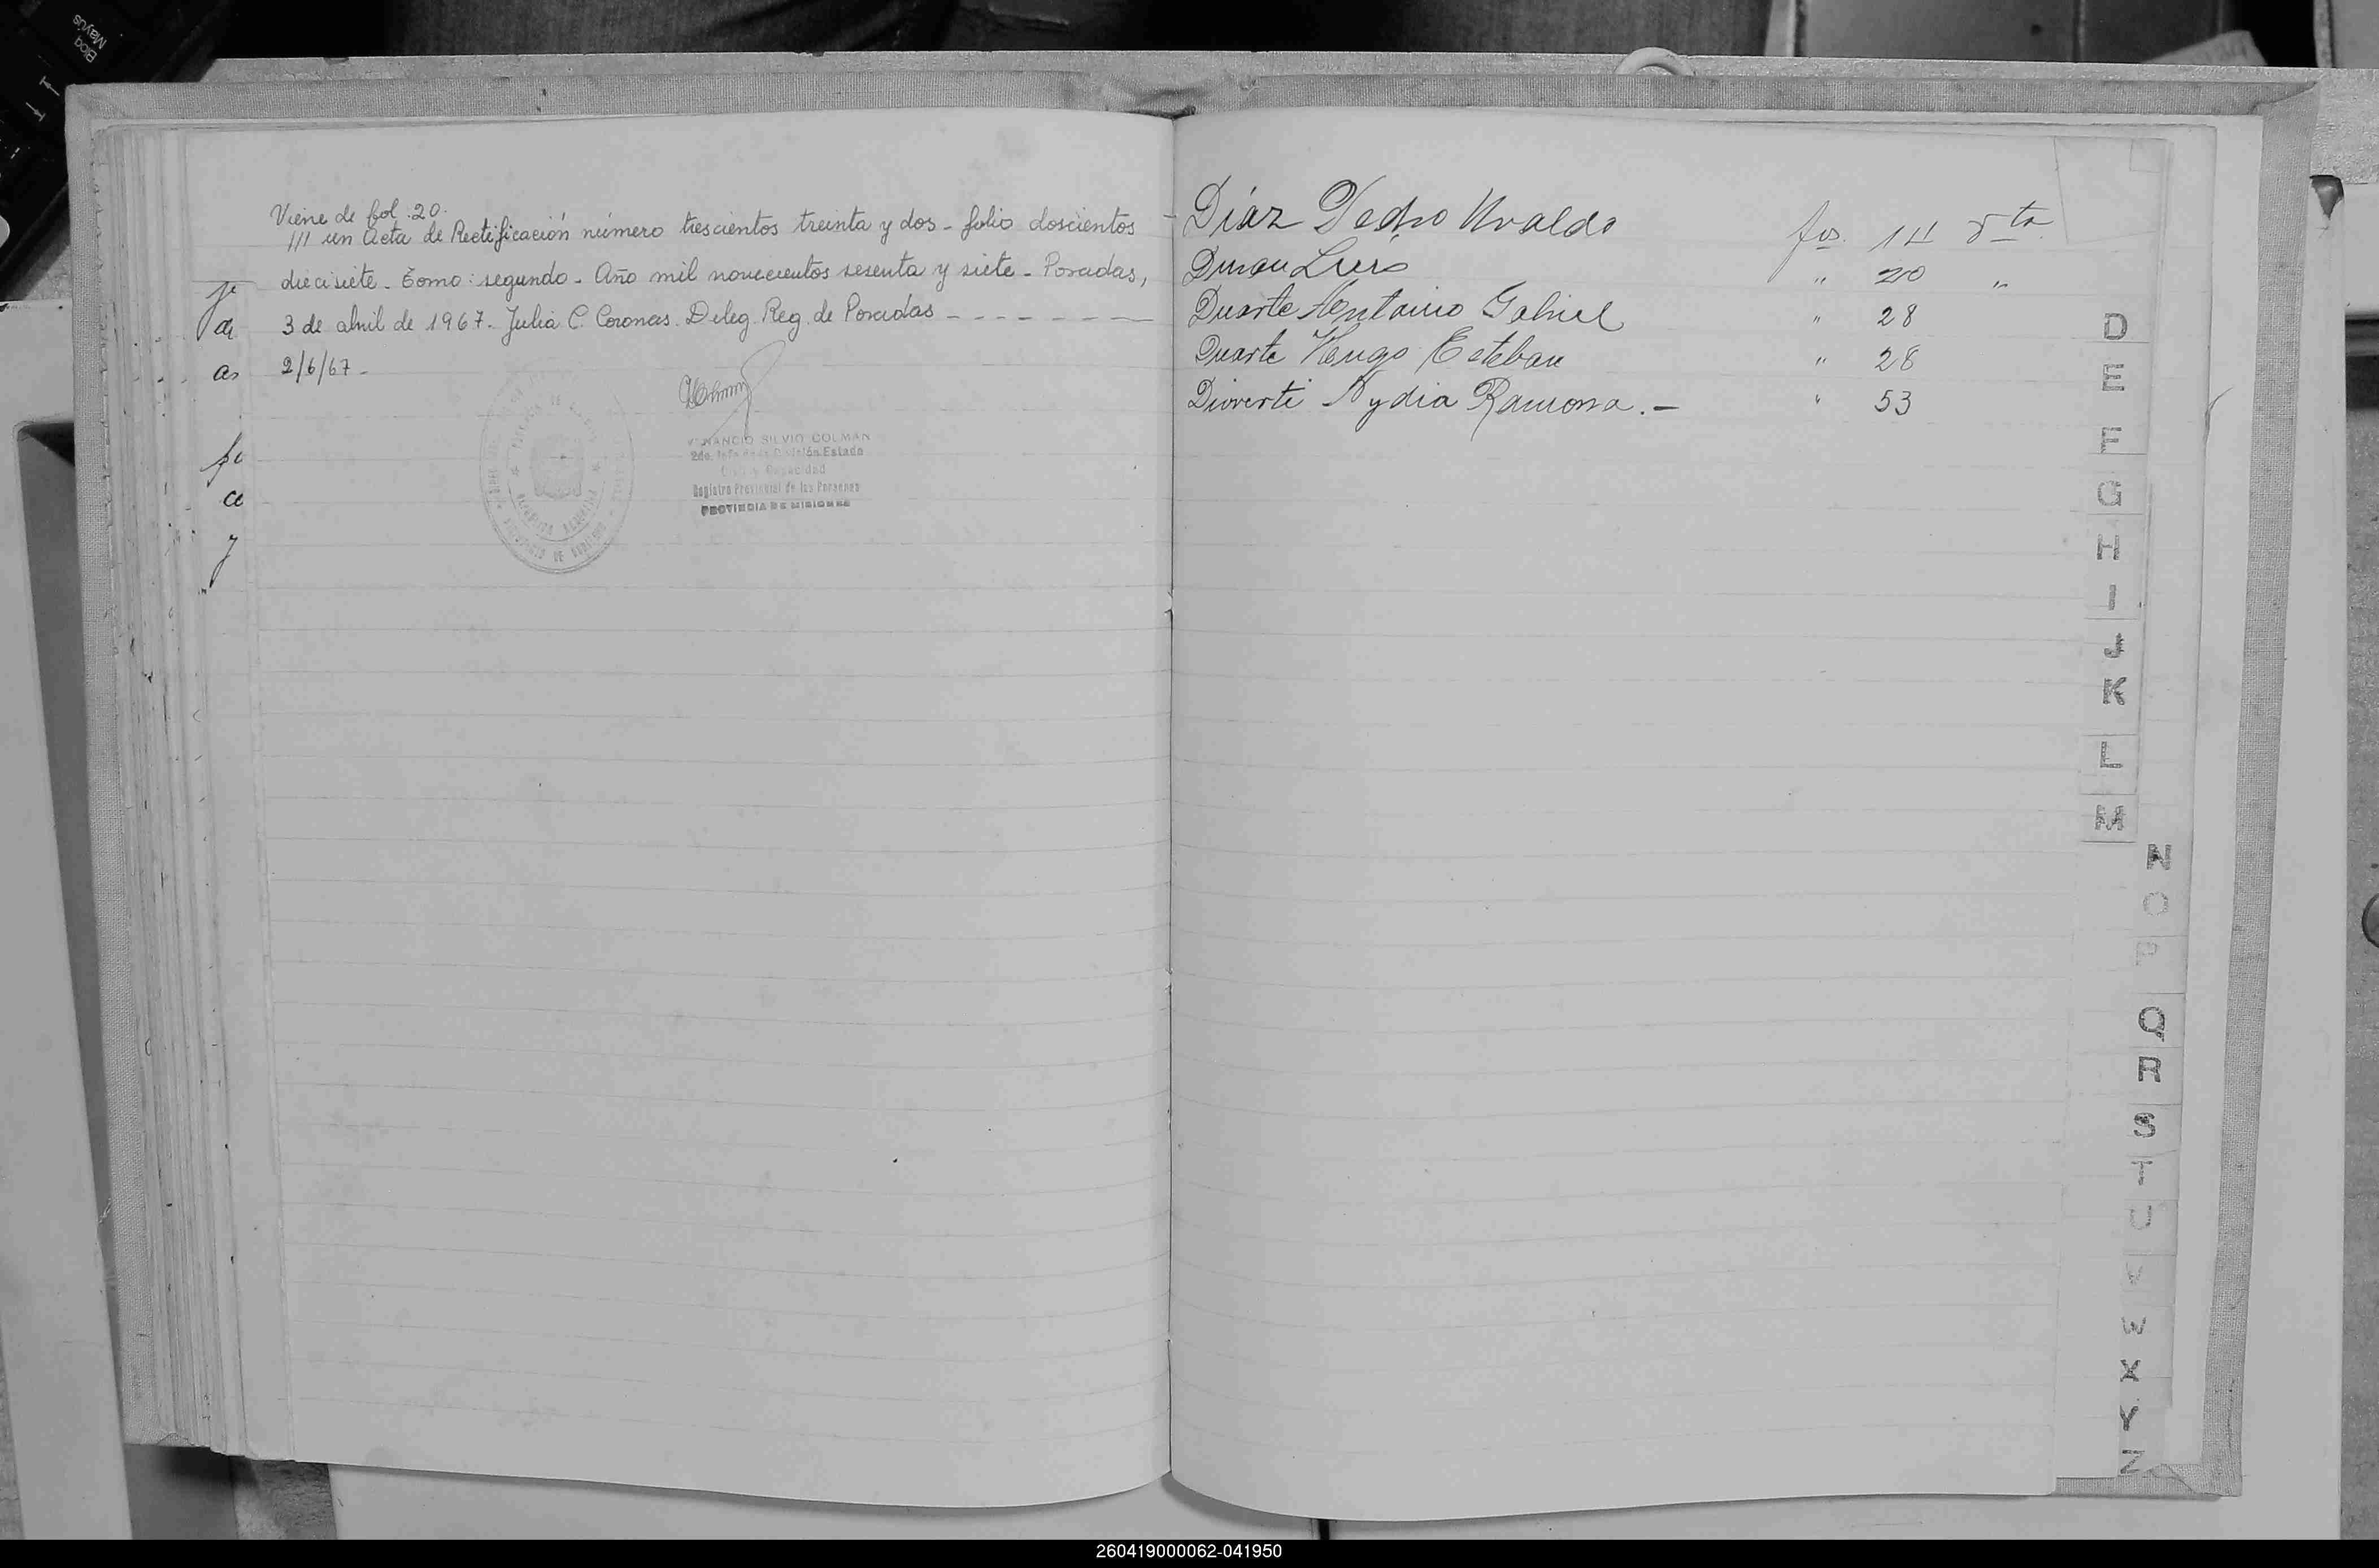 Viene de fol. 20.
/// un Acta de Rectificación número trescientos treinta y dos - folio doscientos
diecisiete. Tomo: segundo - Año mil novecientos sesenta y siete - Posadas,
3 de abril de 1967. Julia C. Coronas. Deleg. Reg. de Posadas
2/6/67 -
SILVIO COLMAN
2do. Jefe División Estado
Civil y Capacidad
Registro Provincial de las Personas
PROVINCIA DE MISIONES
Díaz Pedro Uvaldo fos. 14 vta
Duran Luis " 20 "
Duarte Antonio Gabriel " 28
Duarte Hugo Esteban " 28
Nydia Ramona. - " 53
D
E
F
G
H
I
J
K
L
M
N
O
P
Q
R
S
T
U
V
W
X
Y
Z
Bloq
Mayús
260419000062-041950